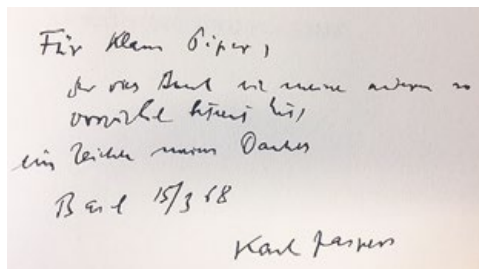 Für Klaus Piper,
der dies Buch wie meine anderen so
vorzüglich betreut hat,
ein Zeichen meines Dankes
Basel 15/3 68
Karl Jaspers